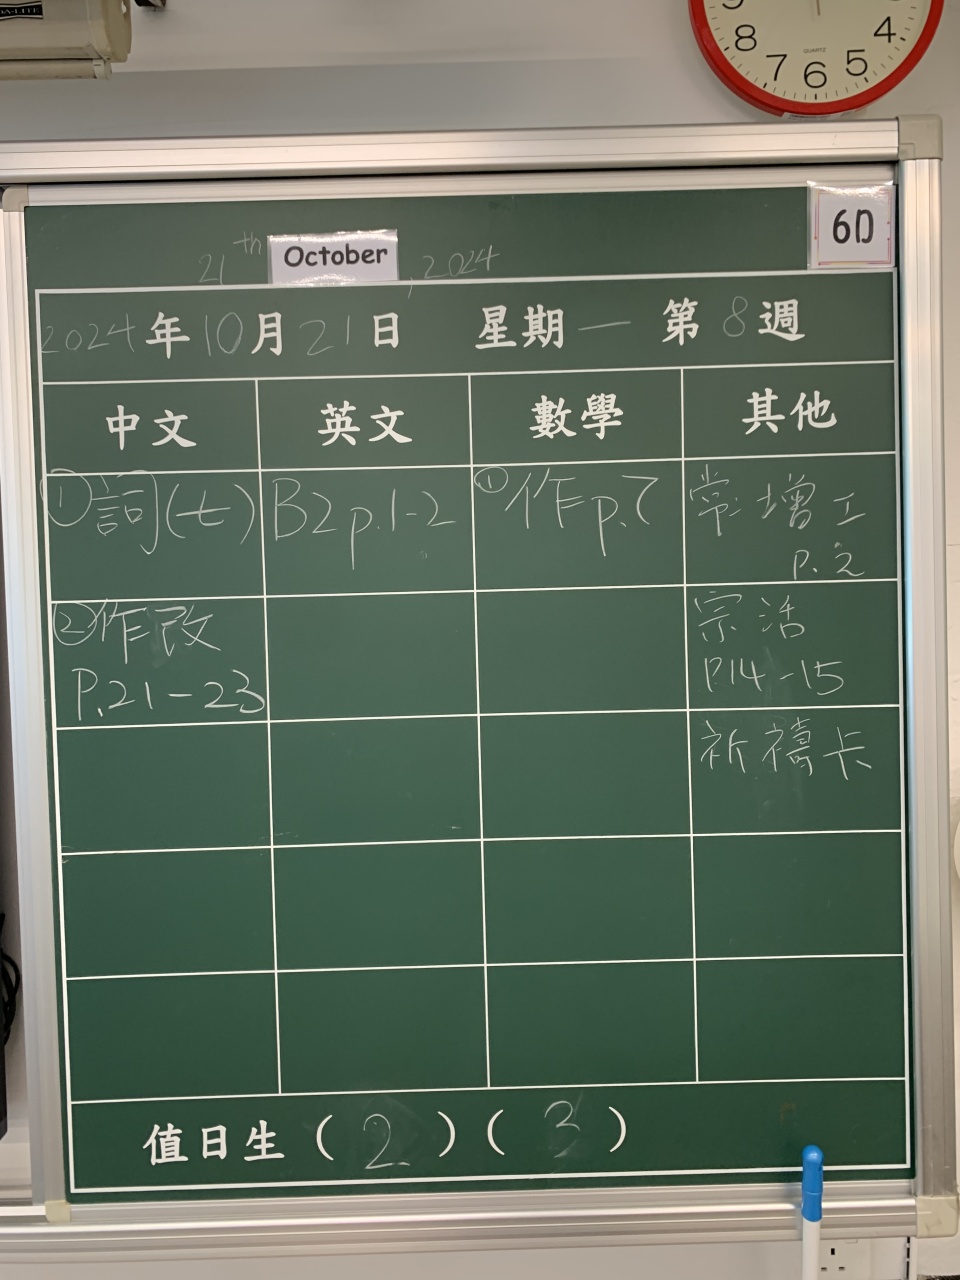 9 8 7 6 5 4
QUARTZ
6D
21th October, 2024
2024年10月21日 星期一 第8週
中文 英文 數學 其他
①詞(七) B2p.1-2 ①作p.7 常增工
P.2
②作改 宗活
P.21-23 P14-15
祈禱卡
值日生(2)(3)